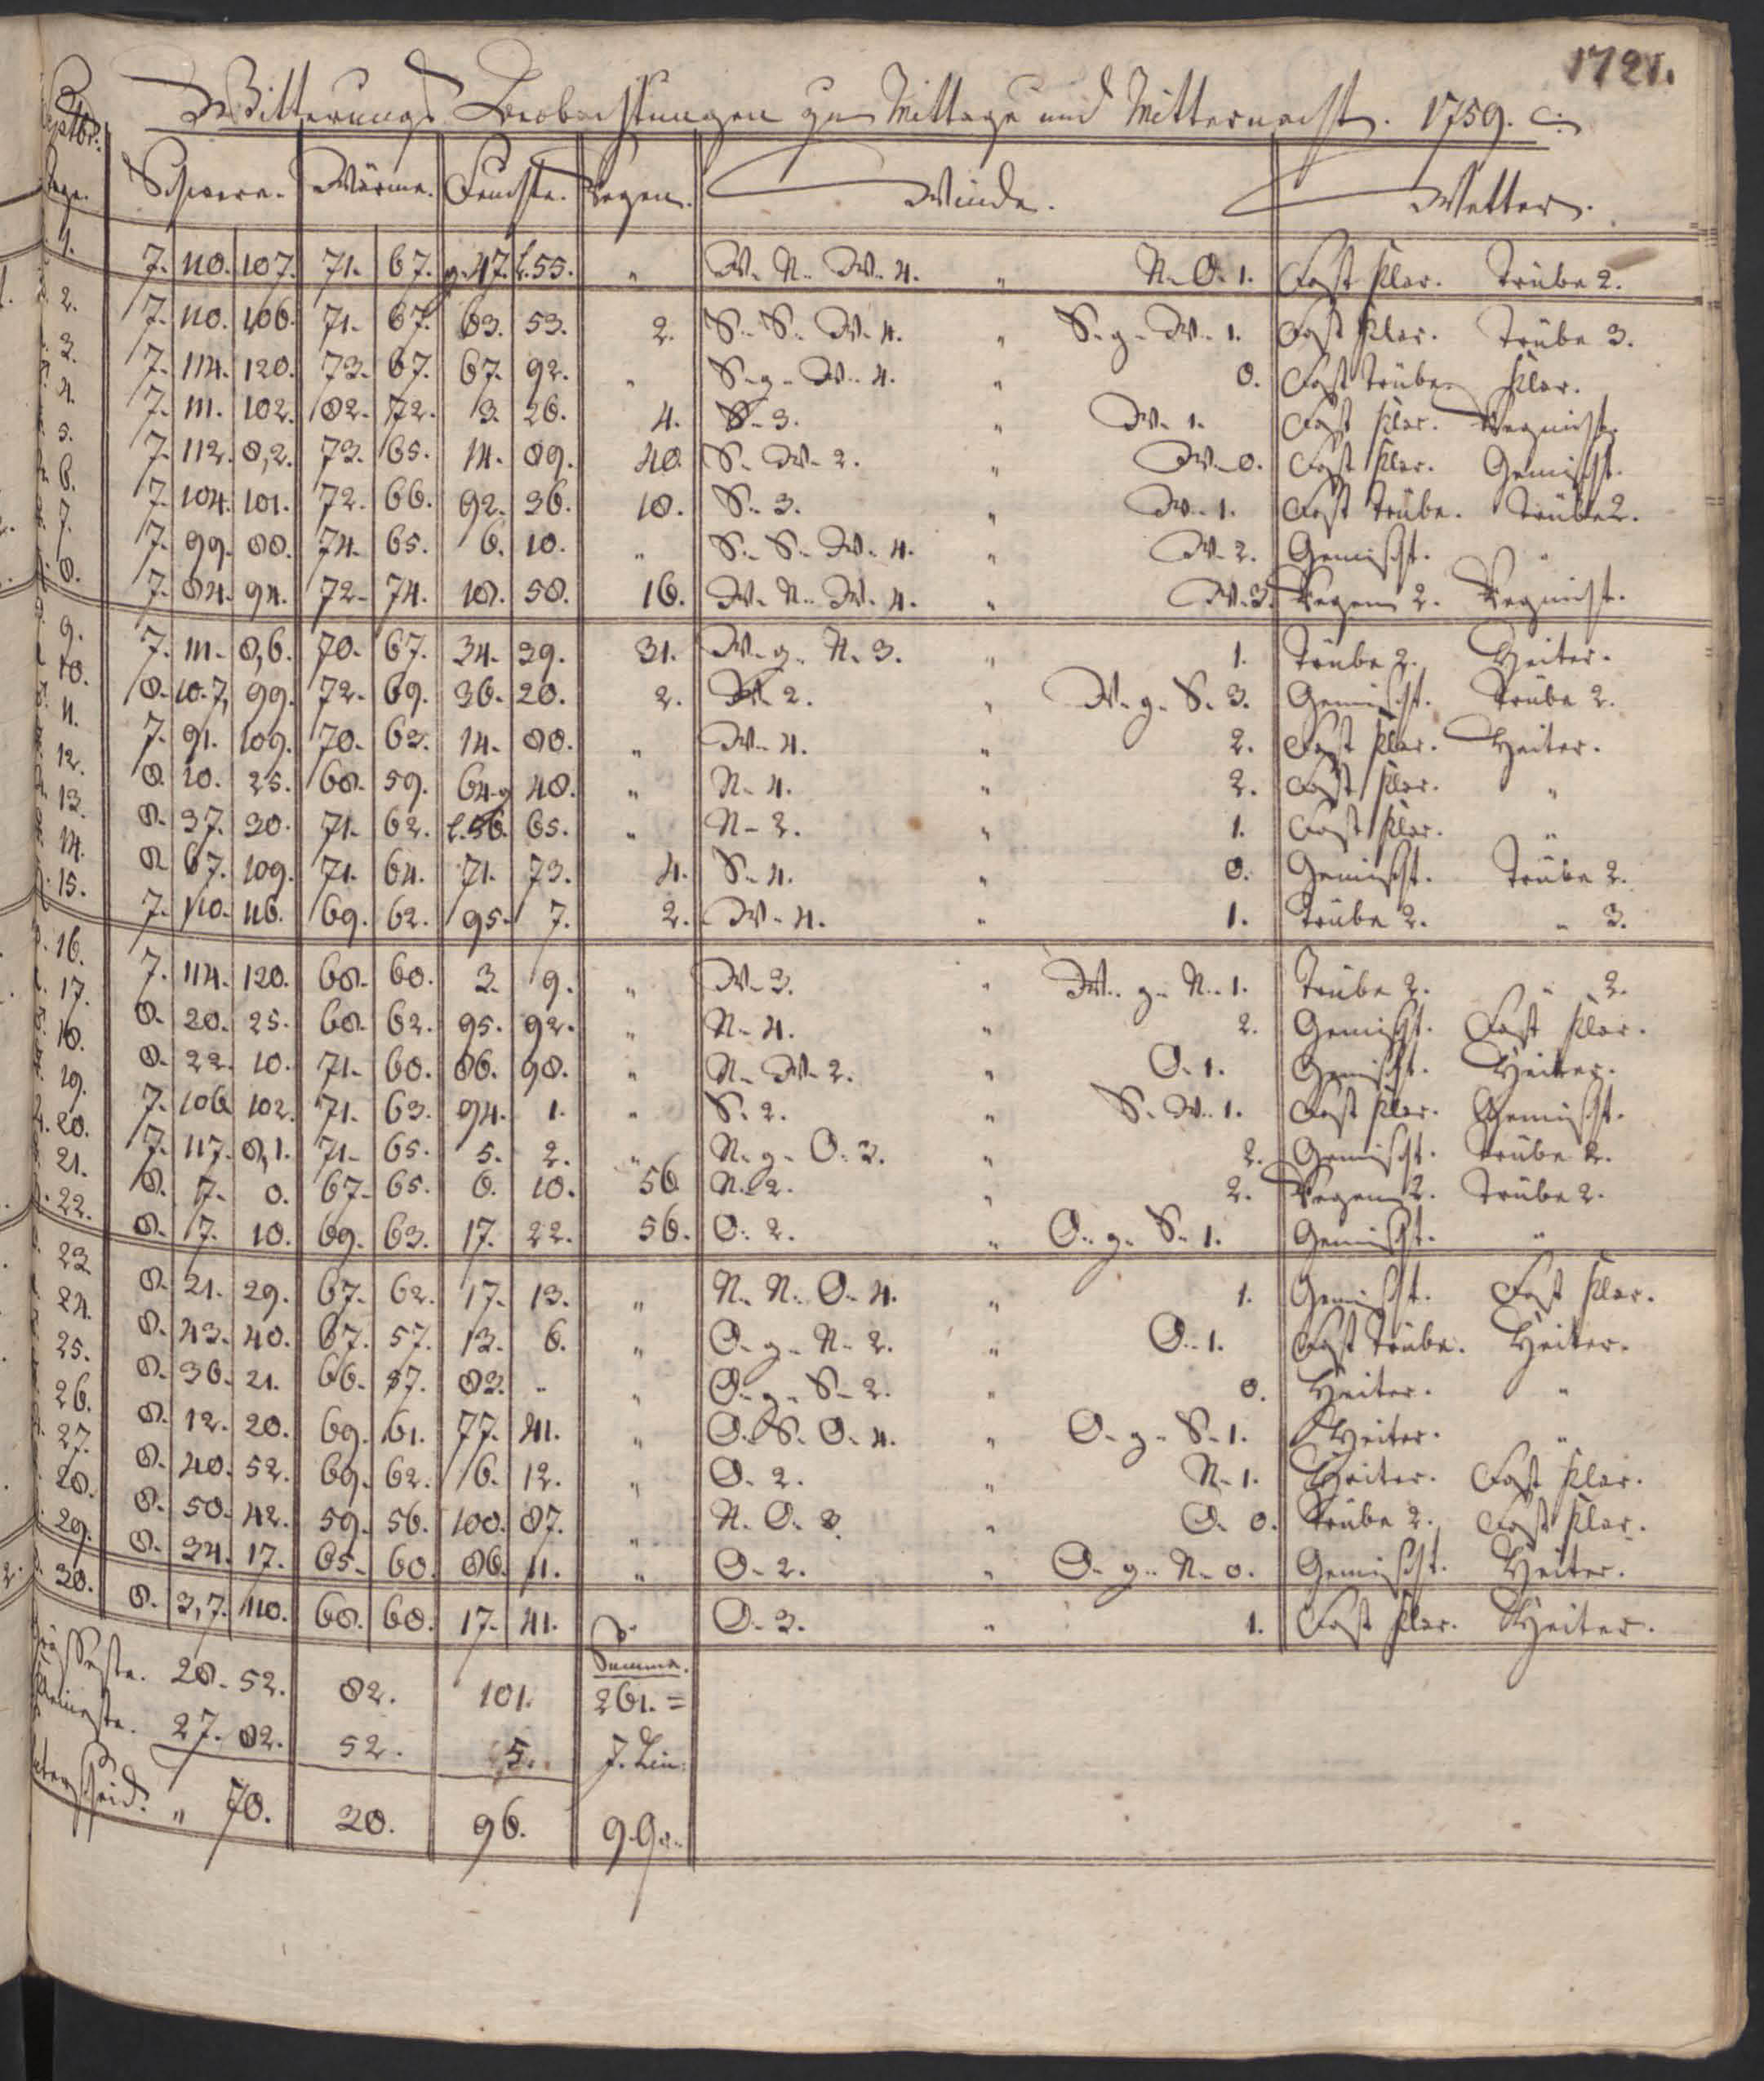 1721.
Septbr. Witterungs Beobachtungen zu Mittage und Mitternacht. 1759.
Tage. Schwere. Wärme. Feuchte. Regen. Winde. Wetter.
1. 7. 110. 107. 71. 67. g. 47. l. 55. " W. N. W. 4. " N. O. 1. Fast klar. Trübe 2.
2. 7. 110. 106. 71. 67. 63. 53. 2. S. S. W. 4. " S. g. W. 1. Fast klar. Trübe 3.
3. 7. 114. 120. 73. 67. 67. 92. " S. g. W. 4. " 0. Fast trübe. klar.
4. 7. 111. 102. 82. 72. 3. 26. 4. S. 3. " W. 1. Fast klar. Regnicht.
5. 7. 112. 8,2. 73. 65. 14. 89. 40. S. W. 2. " W. 0. Fast klar. Gemischt.
6. 7. 104. 101. 72. 66. 92. 36. 18. S. 3. " W. 1. Fast trübe. Trübe 2.
7. 7. 99. 88. 74. 65. 6. 10. " S. S. W. 4. " W. 2. Gemischt. "
8. 7. 84. 94. 72. 74. 18. 58. 16. W. N. W. 4. " W. 3. Regen 2. Regnicht.
9. 7. 111. 8,6. 70. 67. 34. 39. 31. W. g. N. 3. " 1. Trübe 2. Heiter.
10. 8. 10.7, 99. 72. 69. 36. 20. 2. W. 2. " W. g. S. 3. Gemischt. Trübe 2.
11. 7. 91. 109. 70. 63. 14. 88. " W. 4. " 2. Fast klar. Heiter.
12. 8. 10. 25. 68. 59. 64. g 48. " N. 4. " 2. Fast klar. "
13. 8. 37. 30. 71. 62. l. 56. 65. " N. 2. " 1. Fast klar. "
14. 8. 67. 109. 71. 64. 71. 73. 4. S. 4. " 0. Gemischt. Trübe 2.
15. 7. 110. 116. 69. 62. 95. 7. 2. W. 4. " 1. Trübe 2. " 3.
16. 7. 114. 120. 68. 60. 3. 9. " W. 3. " W. g. N. 1. Trübe 2. " 2.
17. 8. 20. 25. 68. 62. 95. 92. " N. 4. " 2. Gemischt. Fast klar.
18. 8. 22. 10. 71. 60. 86. 98. " N. W. 2. " O. 1. Gemischt. Heiter.
19. 7. 106. 102. 71. 63. 94. 1. " S. 2. " S. W. 1. Fast klar. Gemischt.
20. 7. 117. 8,1. 71. 65. 5. 2. " N. g. O. 3. " 2. Gemischt. Trübe 2.
21. 8. 7. 0. 67. 65. 6. 10. 56. N. 2. " 2. Regen 2. Trübe 2.
22. 8. 7. 10. 69. 63. 17. 22. 56. O. 2. " O. g. S. 1. Gemischt. "
23. 8. 21. 29. 67. 62. 17. 13. " N. N. O. 4. " 1. Gemischt. Fast klar.
24. 8. 43. 40. 67. 57. 13. 6. " O. g. N. 2. " O. 1. Fast trübe. Heiter.
25. 8. 36. 21. 66. 57. 83. " " O. g. S. 2. " 0. Heiter. "
26. 8. 12. 20. 69. 61. 77. 41. " O. S. O. 4. " O. g. S. 1. Heiter. "
27. 8. 40. 52. 69. 62. 6. 12. " O. 2. " N. 1. Heiter. Fast klar.
28. 8. 50. 42. 59. 56. 100. 87. " N. O. 3. " O. 0. Trübe 2. Fast klar.
29. 8. 34. 17. 65. 60. 86. 11. " O. 2. " O. g. N. 0. Gemischt. Heiter.
30. 8. 3,7. 110. 68. 60. 17. 41. " O. 3. " 1. Fast klar. Heiter.
Summa.
28. 52. 82. 101. 261. =
27. 82. 52. 5. 7. Lin:
" 70. 30. 96. 9. Gr.